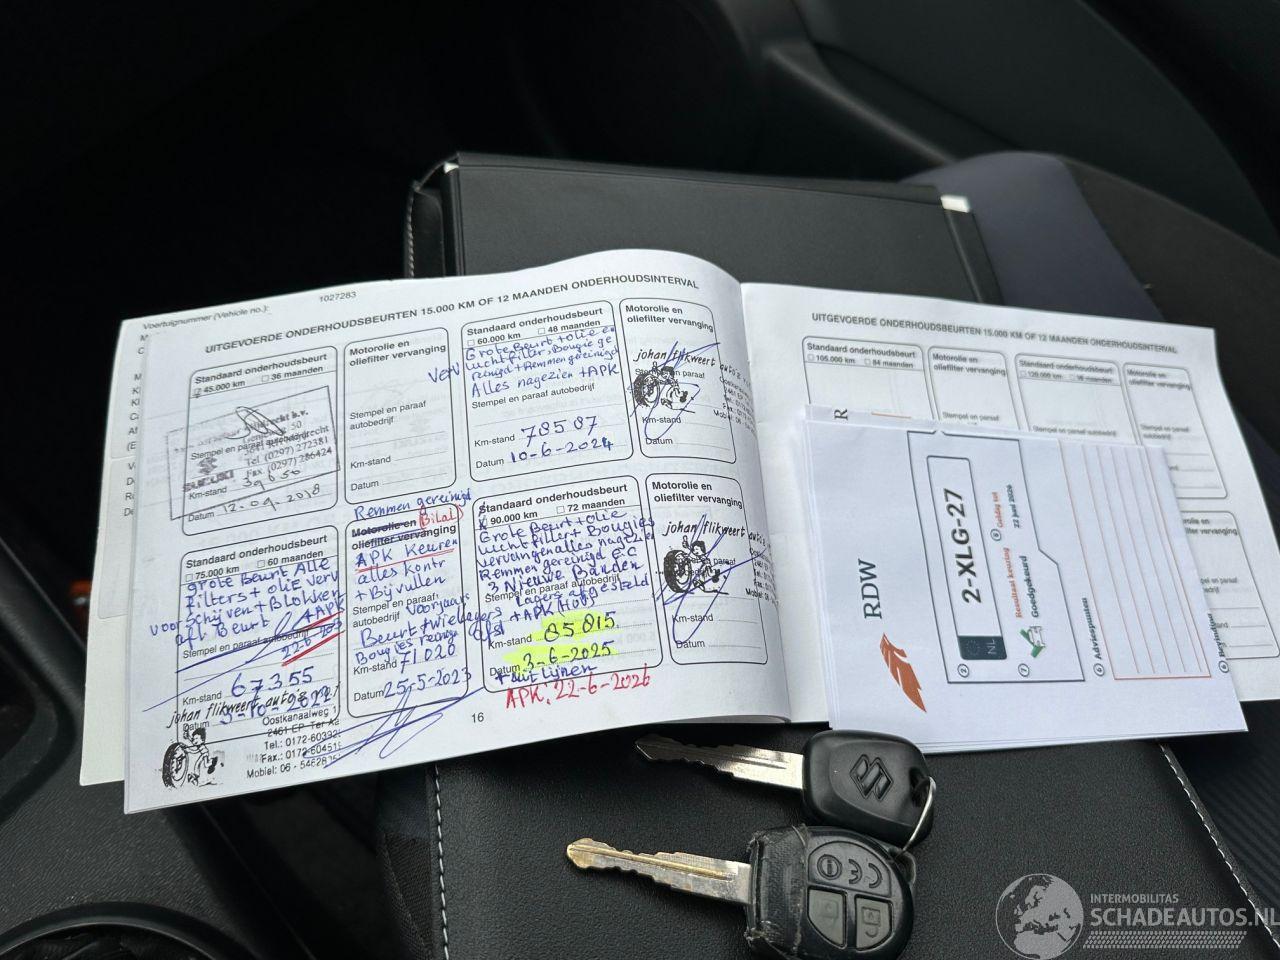 Voertuignummer (Vehicle no.):
1027283
UITGEVOERDE ONDERHOUDSBEURTEN 15.000 KM OF 12 MAANDEN ONDERHOUDSINTERVAL
Standaard onderhoudsbeurt
45.000 km 36 maanden
Stempel en paraaf autobedrijf
Tel (0297) 272381
Fax (0297) 286424
SUZUKI
Km-stand 39650
Datum 12-09-2018
Motorolie en
oliefilter vervanging
Stempel en paraaf
autobedrijf
Km-stand
Datum
Standaard onderhoudsbeurt
60.000 km 48 maanden
Grote Beurt + olie en
verv luchtfilter, Bougie ge
reinigd + Remmen gereinigd
Alles nagezien + APK
Stempel en paraaf autobedrijf
Km-stand 78587
Datum 10-6-2024
Motorolie en
oliefilter vervanging
johan flikweert auto's
Km-stand
Datum
Standaard onderhoudsbeurt
75.000 km 60 maanden
Grote Beurt Alle
Filters + olie verv
voor Schijven + Blokken
+ APK
Stempel en paraaf autobedrijf
Km-stand 67355
johan flikweert auto's
Datum
Oostkanaalweg
2461 EP Ter Aa
Tel.: 0172-60392
Fax.: 0172-60451
Mobiel: 06 - 54628
Remmen gereinigd
Motorolie en Bilal
oliefilter vervanging
APK Keuren
alles Kontr
+ Bijvullen
Stempel en paraaf
Beurt
Bougies reinig
Km-stand 71020
Datum 25-5-2023
Standaard onderhoudsbeurt
90.000 km 72 maanden
Grote Beurt + olie
luchtfilter + Bougies
vervangen alles nagezien
Remmen gereinigd E C
3 Nieuwe Banden
Stempel en paraaf autobedrijf
Km-stand 85815
Datum 3-6-2025
+ uitlijnen
APK. 22-6-2026
Motorolie en
oliefilter vervanging
johan flikweert auto's
Km-stand
Datum
16
UITGEVOERDE ONDERHOUDSBEURTEN 15.000 KM OF 12 MAANDEN ONDERHOUDSINTERVAL
Standaard onderhoudsbeurt
105.000 km 84 maanden
Motorolie en
oliefilter vervanging
Stempel en paraaf
autobedrijf
Standaard onderhoudsbeurt
120.000 km 96 maanden
Stempel en paraaf autobedrijf
Motorolie en
oliefilter vervanging
Stempel en paraaf
autobedrijf
RDW
NL
2-XLG-27
Resultaat keuring
Goedgekeurd
Geldig tot
22 juni 2026
Adviespunten
INTERMOBILITAS
SCHADEAUTOS.NL